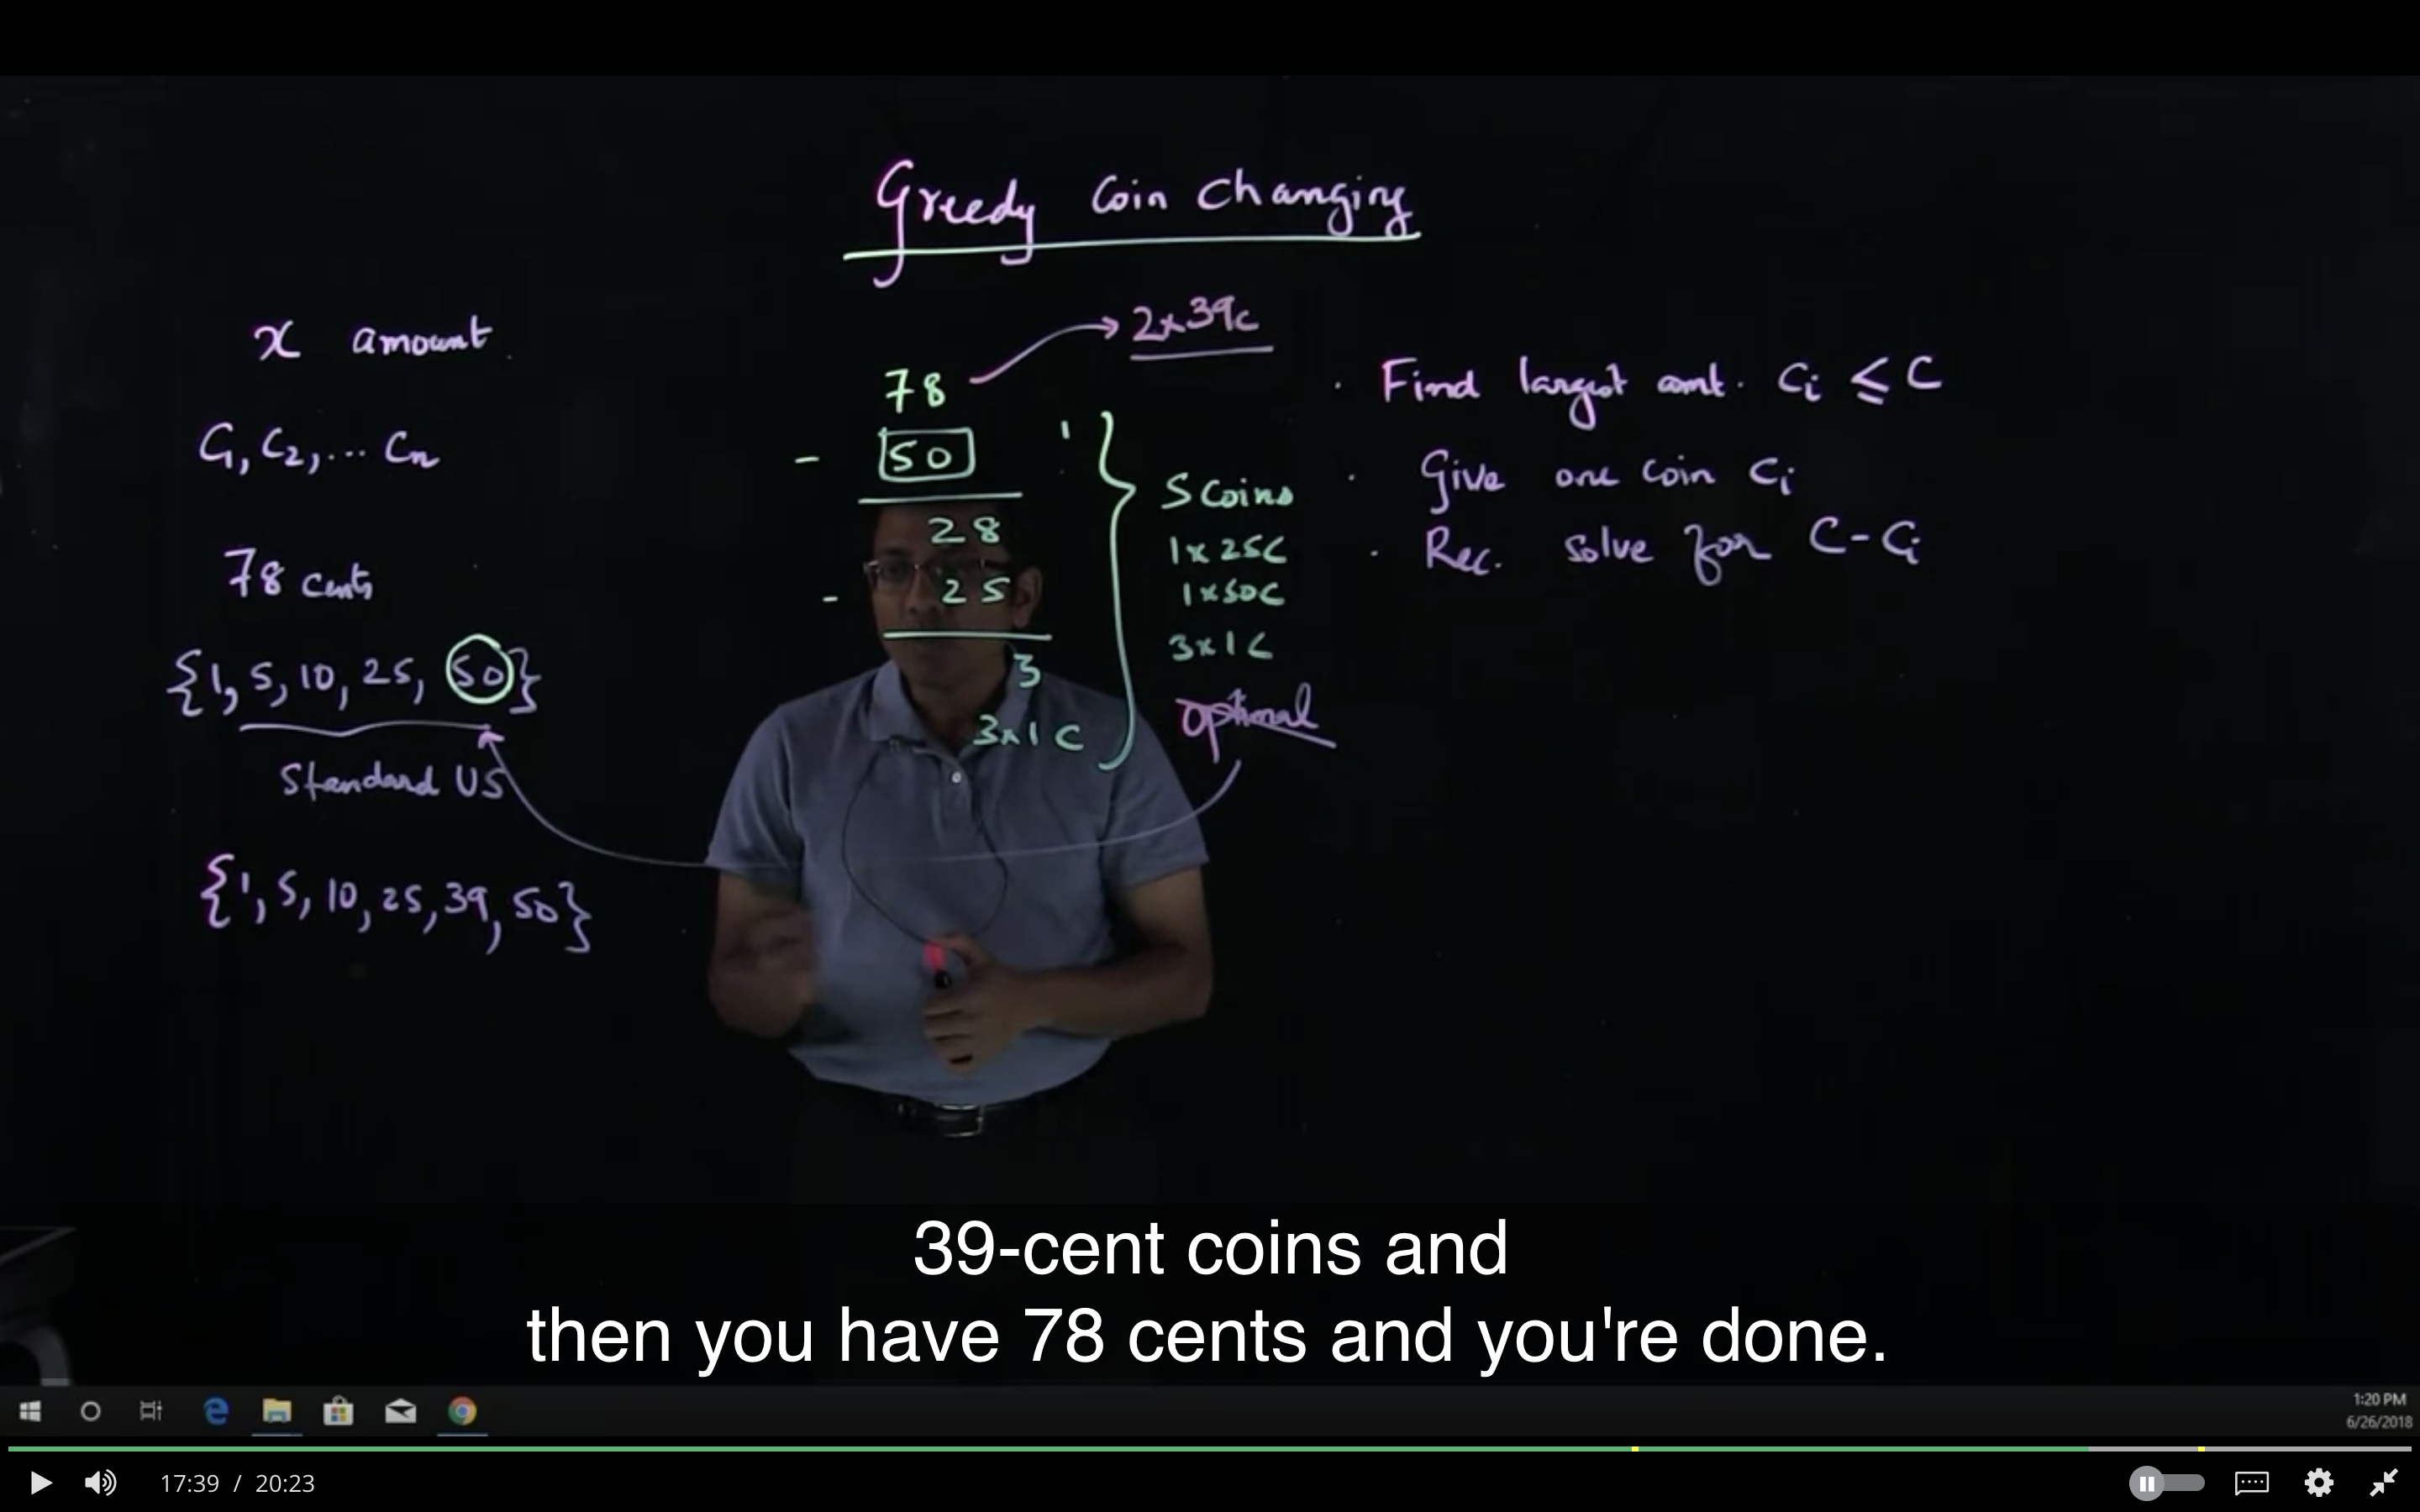 Greedy Coin Changing
x amount
C1, C2, ... Cn
78 cents
{1, 5, 10, 25, 50}
Standard US
{1, 5, 10, 25, 39, 50}
2x39c
78
- 50 1
28
- 25
3
3x1c
5 Coins
1x25c
1x50c
3x1c
optimal
· Find largest amt. Ci ≤ C
· Give one coin Ci
· Rec. solve for C-Ci
39-cent coins and
then you have 78 cents and you're done.
1:20 PM
6/26/2018
17:39 / 20:23